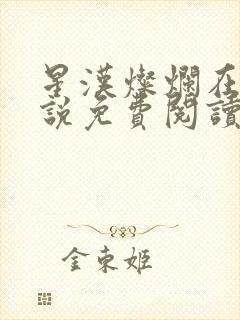 星漢燦爛在
說免費閱讀
金束姬